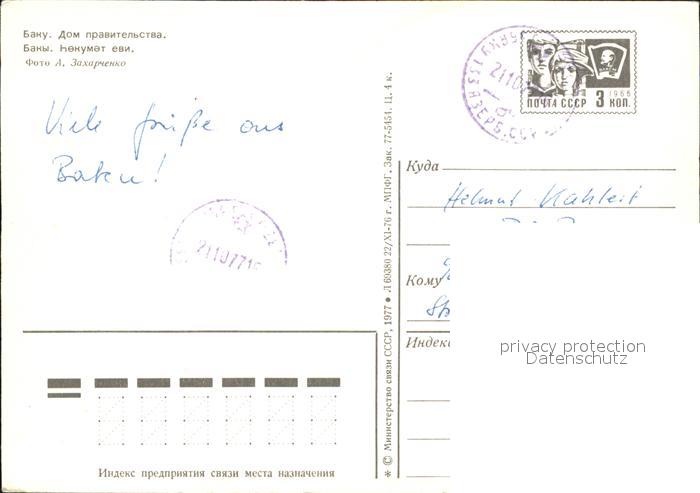 Баку. Дом правительства.
Бакы. Һөкумәт еви.
Фото А. Захарченко
Viele Grüße aus
Baku!
21 10 77 15
ПОЧТА СССР 3 КОП.
1966
Куда
Helmut
Кому
Индекс
privacy protection
Datenschutz
* © Министерство связи СССР, 1977 ● Л 60380 22/XI-76 г. МПФГ. Зак. 77-5454. Ц. 4 к.
Индекс предприятия связи места назначения